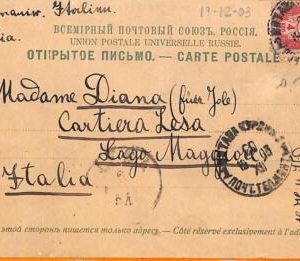 Италiи.
19-12-03
ia.
ВСЕМІРНЫЙ ПОЧТОВЫЙ СОЮЗЪ. РОССІЯ.
UNION POSTALE UNIVERSELLE RUSSIE.
ОТКРЫТОЕ ПИСЬМО. — CARTE POSTALE
Madame Diana (für Jole)
Cartiera Lesa
Lago Maggiore
Italia
а этой сторонѣ пишется только адресъ. — Côté réservé exclusivement à l'adr